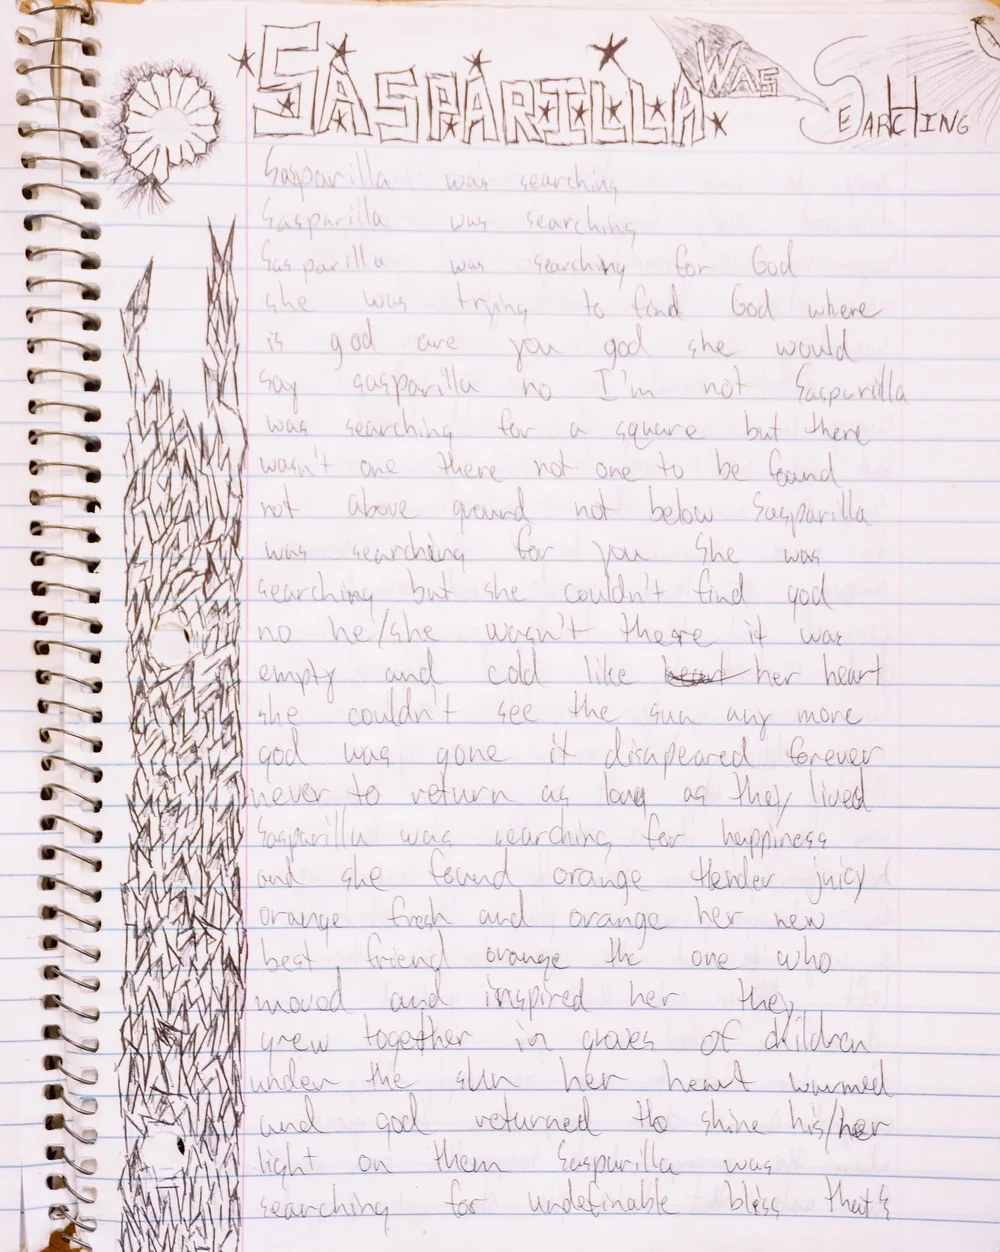 SASPARILLA WAS SEARCHING
Sasparilla was searching
Sasparilla was searching
Sasparilla was searching for God
she was trying to find God where
is god are you god she would
say sasparilla no I'm not Sasparilla
was searching for a square but there
wasn't one there not one to be found
not above ground not below Sasparilla
was searching for you she was
searching but she couldn't find god
no he/she wasn't there it was
empty and cold like heart her heart
she couldn't see the sun any more
god was gone it disapeared forever
never to return as long as they lived
Sasparilla was searching for happiness
and she found orange tender juicy
orange fresh and orange her new
best friend orange the one who
moved and inspired her they
grew together in groves of children
under the sun her heart warmed
and god returned to shine his/her
light on them Sasparilla was
searching for undefinable bliss thats